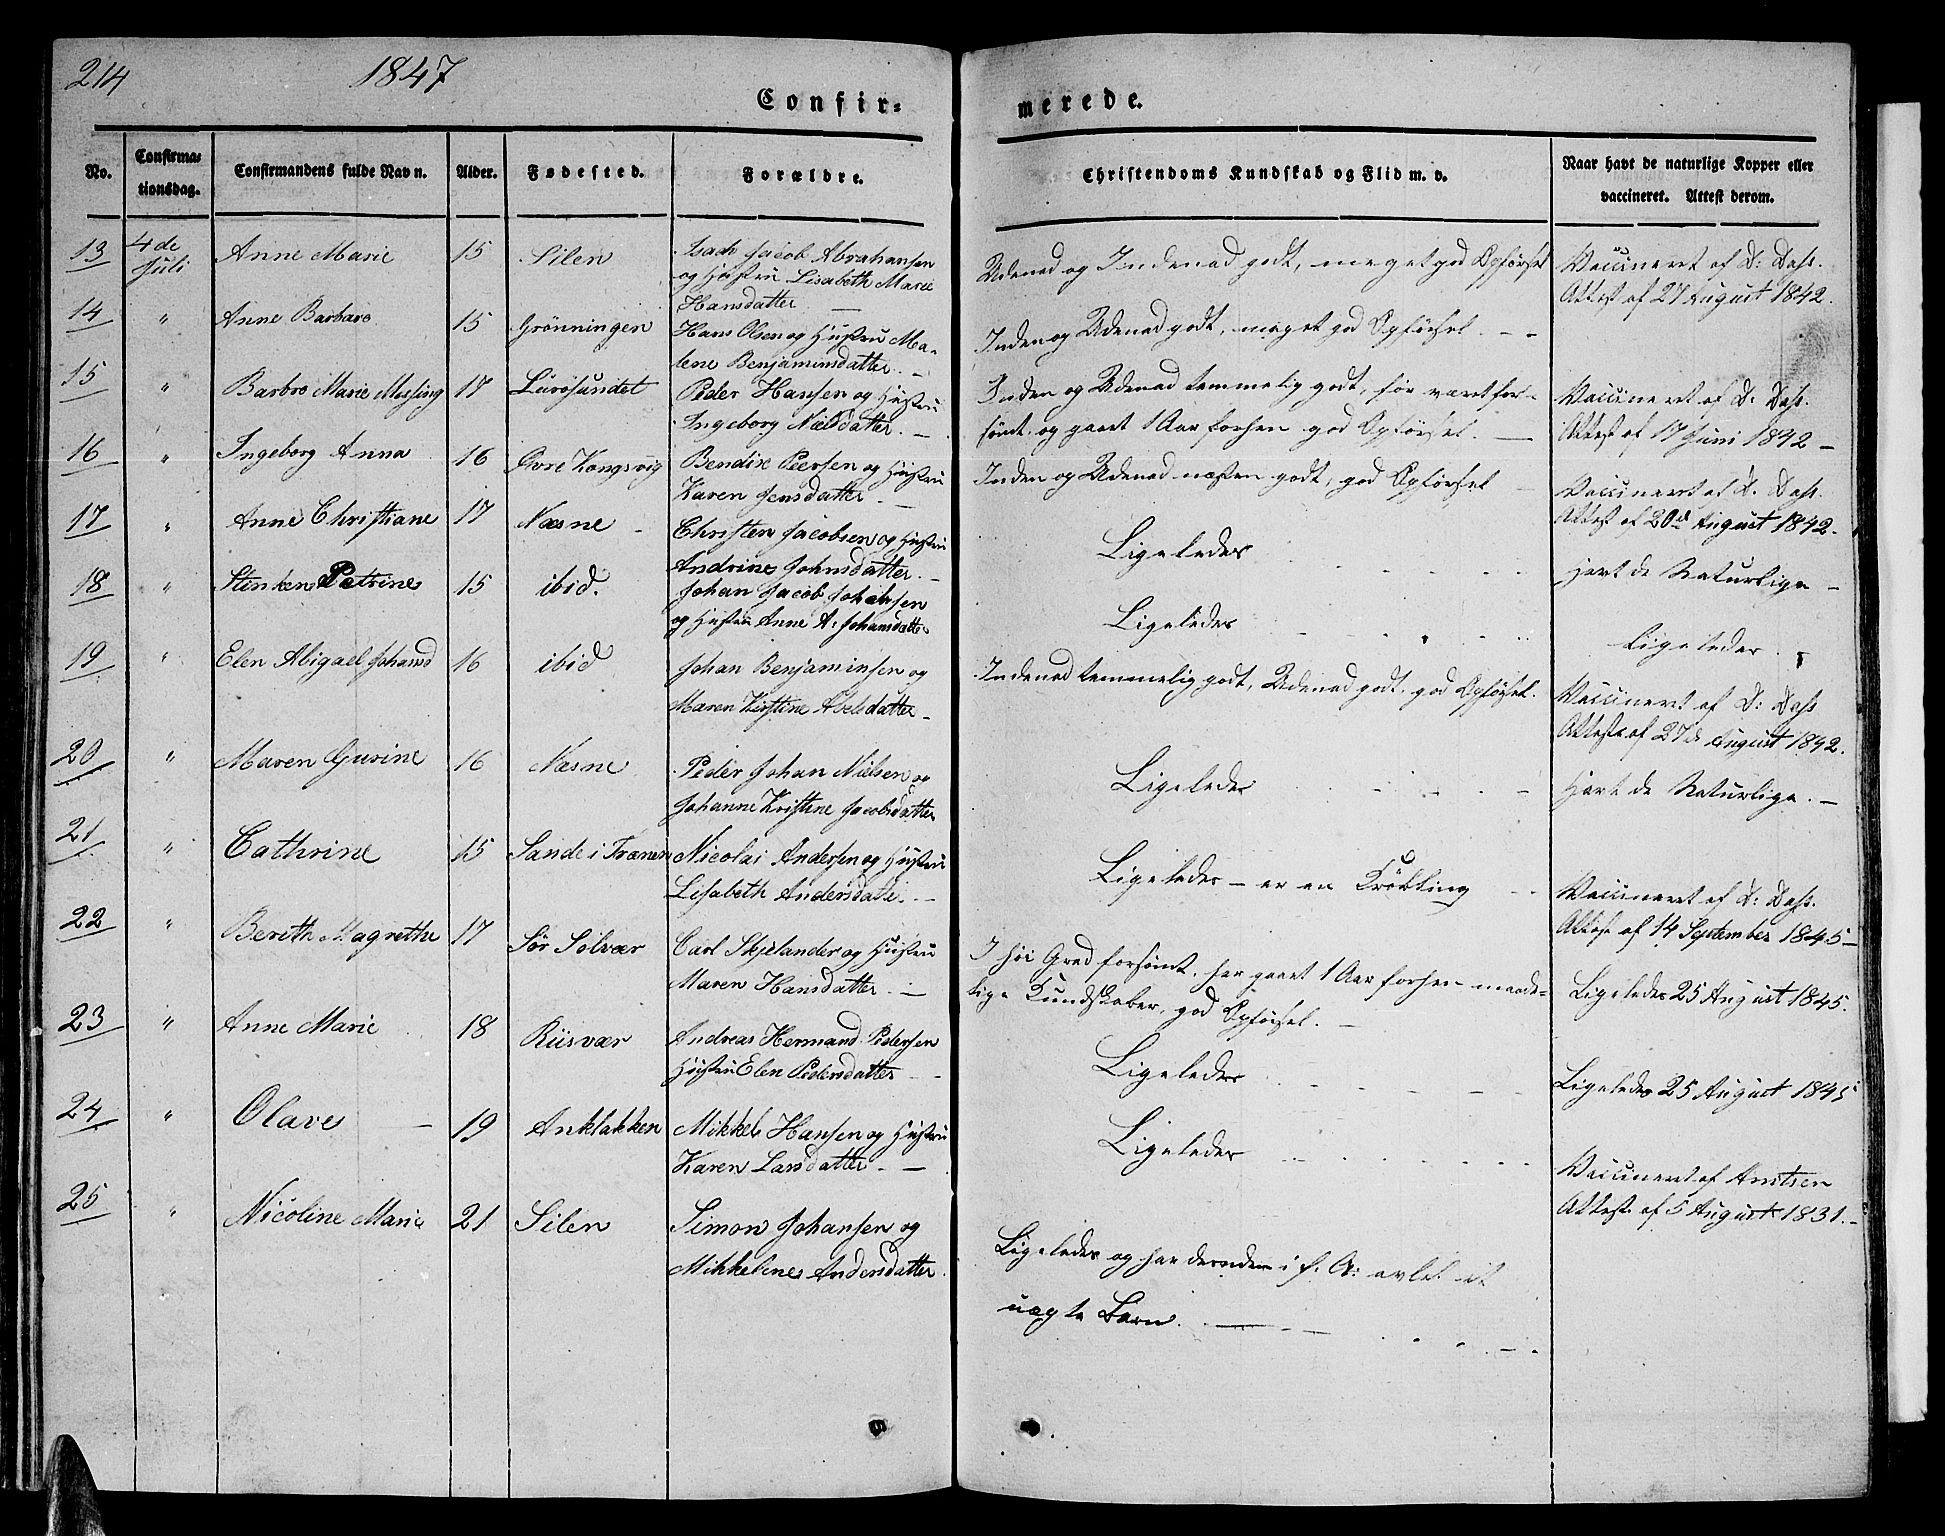 214 1847
Confir- merede.
No. Confirma- tionsdag. Confirmandens fulde Navn. Alder. Fødested. Forældre. Christendoms Kundskab og Flid m. v. Naar havt de naturlige Kopper eller vaccineret. Attest derom.
13 4de Juli Anne Marie 15 Silen Isach Jacob Abrahansen
og Hustru Lisabeth Marie
Hansdatter
Udenad og Indenad godt, meget god Opførsel
Vaccineret af D: Dahs.
Attest af 27 August 1842.
14 " Anne Barbara 15 Grønningen Hans Olsen og Hustru Ma-
lene Benjaminsdatter. -
Inden og Udenad godt, meget god Opførsel. - -
15 " Barbro Marie Messing 17 Lurøsundet Peder Hansen og Hustru
Ingeborg Nielsdatter. -
Inden og Udenad temmelig godt, før været for-
sømt. og gaaet 1 Aar forhen god Opførsel. -
Vaccineret af D: Dahs.
Attest af 17 Juni 1842 -
16 " Ingeborg Anna 16 Øvre Kongsvig Bendix Peersen og Hustru
Karen Jensdatter -
Inden og Udenad næsten godt, god Opførsel
Vaccineret af D. Dahs.
Attest af 20d August 1842.
17 " Anne Christiane 17 Næsne - Christen Jacobsen og Hustru
Andrine Johnsdatter. -
Ligeledes
Havt de Naturlige -
18 " Stinken Petrine 15 ibid. Johan Jacob Johansen
og Hustru Anne A: Johansdatter
Ligeledes
Ligeledes
19 " Elen Abigael Johansd 16 ibid Johan Benjaminsen og
Maren Kirstine Abeledatter -
Indenad temmelig godt, Udenad godt. god Opførsel.
Vaccineret af D: Dahs
Attest af 27d August 1842.
20 " Maren Gurine 16 Næsne Peder Johan Nielsen og
Johanne Kristine Jacobsdatter
Ligeledes
Havt de Naturlige. -
21 " Cathrine 15 Sande i Trænen Nicolai Andersen og Hustru
Lisabeth Andersdatte. -
Ligeledes - er en Krøbling
Vaccineret af D: Dahs.
Attest af 14 September 1845 -
22 " Berith Magrethe 17 Sør Solvær Carl Skjelander og Hustru
Maren Hansdatter. -
I høi Grad forsømt. har gaaet 1 Aar forhen maade-
lige Kundskaber, god Opførsel. -
Ligeledes 25 August 1845.
23 " Anne Marie 18 Riisvær Andreas Hermand Pedersen
Hustru Elen Pedersdatter
Ligeledes
Ligeledes 25 August 1845
24 " Olave - 19 Anklakken Mikkel Hansen og Hustru
Karen Larsdatter. -
Ligeledes
Vaccineret af Arntsen
Attest af 5 August 1831. -
25 " Nicoline Marie 21 Silen Simon Johansen og
Mikkeline Andersdatter.
Ligeledes og har desuden i f. A: avlet et
uægte Barn.